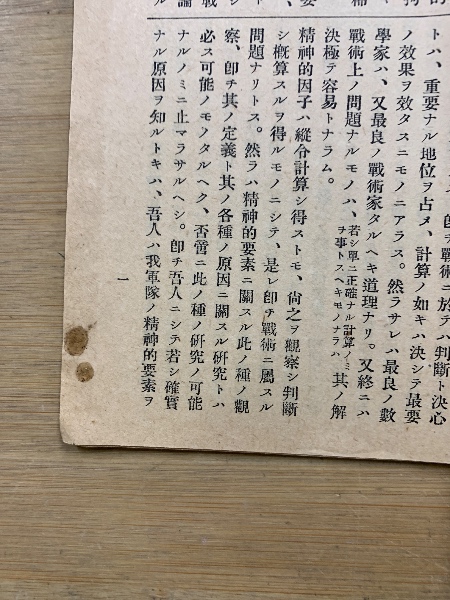 卽チ戰術ニ於テハ判斷ト決心
トハ、重要ナル地位ヲ占メ、計算ノ如キハ決シテ最要
ノ效果ヲ效タスニモノニアラス。然ラサレハ最良ノ數
學家ハ、又最良ノ戰術家タルヘキ道理ナリ。又終ニハ
戰術上ノ問題ナルモノハ、若シ單ニ正確ナル計算ノミヲ事トスヘキモノナラハ其ノ解
決極テ容易トナラム。
精神的因子ハ縱令計算シ得ストモ、尙之ヲ觀察シ判斷
シ槪算スルヲ得ルモノニシテ、是レ卽チ戰術ニ屬スル
問題ナリトス。然ラハ精神的要素ニ關スル此ノ種ノ觀
察、卽チ其ノ定義ト其ノ各種ノ原因ニ關スル硏究トハ
必ス可能ノモノタルヘク、否啻ニ此ノ種ノ硏究ノ可能
ナルノミニ止マラサルヘシ。卽チ吾人ニシテ若シ確實
ナル原因ヲ知ルトキハ、吾人ハ我軍隊ノ精神的要素ヲ
一